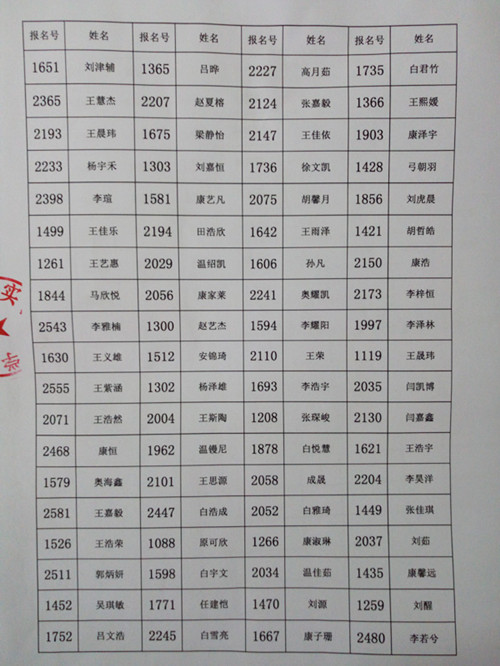 报名号 姓名 报名号 姓名 报名号 姓名 报名号 姓名
1651 刘津辅 1365 吕晔 2227 高月茹 1735 白君竹
2365 王慧杰 2207 赵夏榕 2124 张嘉毅 1366 王熙媛
2193 王晨玮 1675 梁静怡 2147 王佳依 1903 康泽宇
2233 杨宇禾 1303 刘嘉恒 1736 徐文凯 1428 弓朝羽
2398 李瑄 1581 康艺凡 2075 胡馨月 1856 刘虎晨
1499 王佳乐 2194 田浩欣 1642 王雨泽 1421 胡哲皓
1261 王艺惠 2029 温绍凯 1606 孙凡 2150 康浩
1844 马欣悦 2056 康家莱 2241 奥耀凯 2173 李梓恒
2543 李雅楠 1300 赵艺杰 1594 李耀阳 1997 李泽林
1630 王义雄 1512 安锦琦 2110 王荣 1119 王晟玮
2555 王紫涵 1302 杨泽雄 1693 李浩宇 2035 闫凯博
2071 王浩然 2004 王斯陶 1208 张琛峻 2130 闫嘉鑫
2468 康恒 1962 温镘尼 1878 白悦慧 1621 王浩宇
1579 奥海鑫 2101 王思源 2058 成晟 2204 李昊洋
2581 王嘉毅 2447 白浩成 2052 白雅琦 1449 张佳琪
1526 王浩荣 1088 原可欣 1266 康淑琳 2037 刘茹
2511 郭炳妍 1598 白宇文 2034 温佳茹 1435 康馨远
1452 吴琪敏 1771 任建恺 1470 刘源 1259 刘醒
1752 吕文浩 2245 白雪亮 1667 康子珊 2480 李若兮
实
学